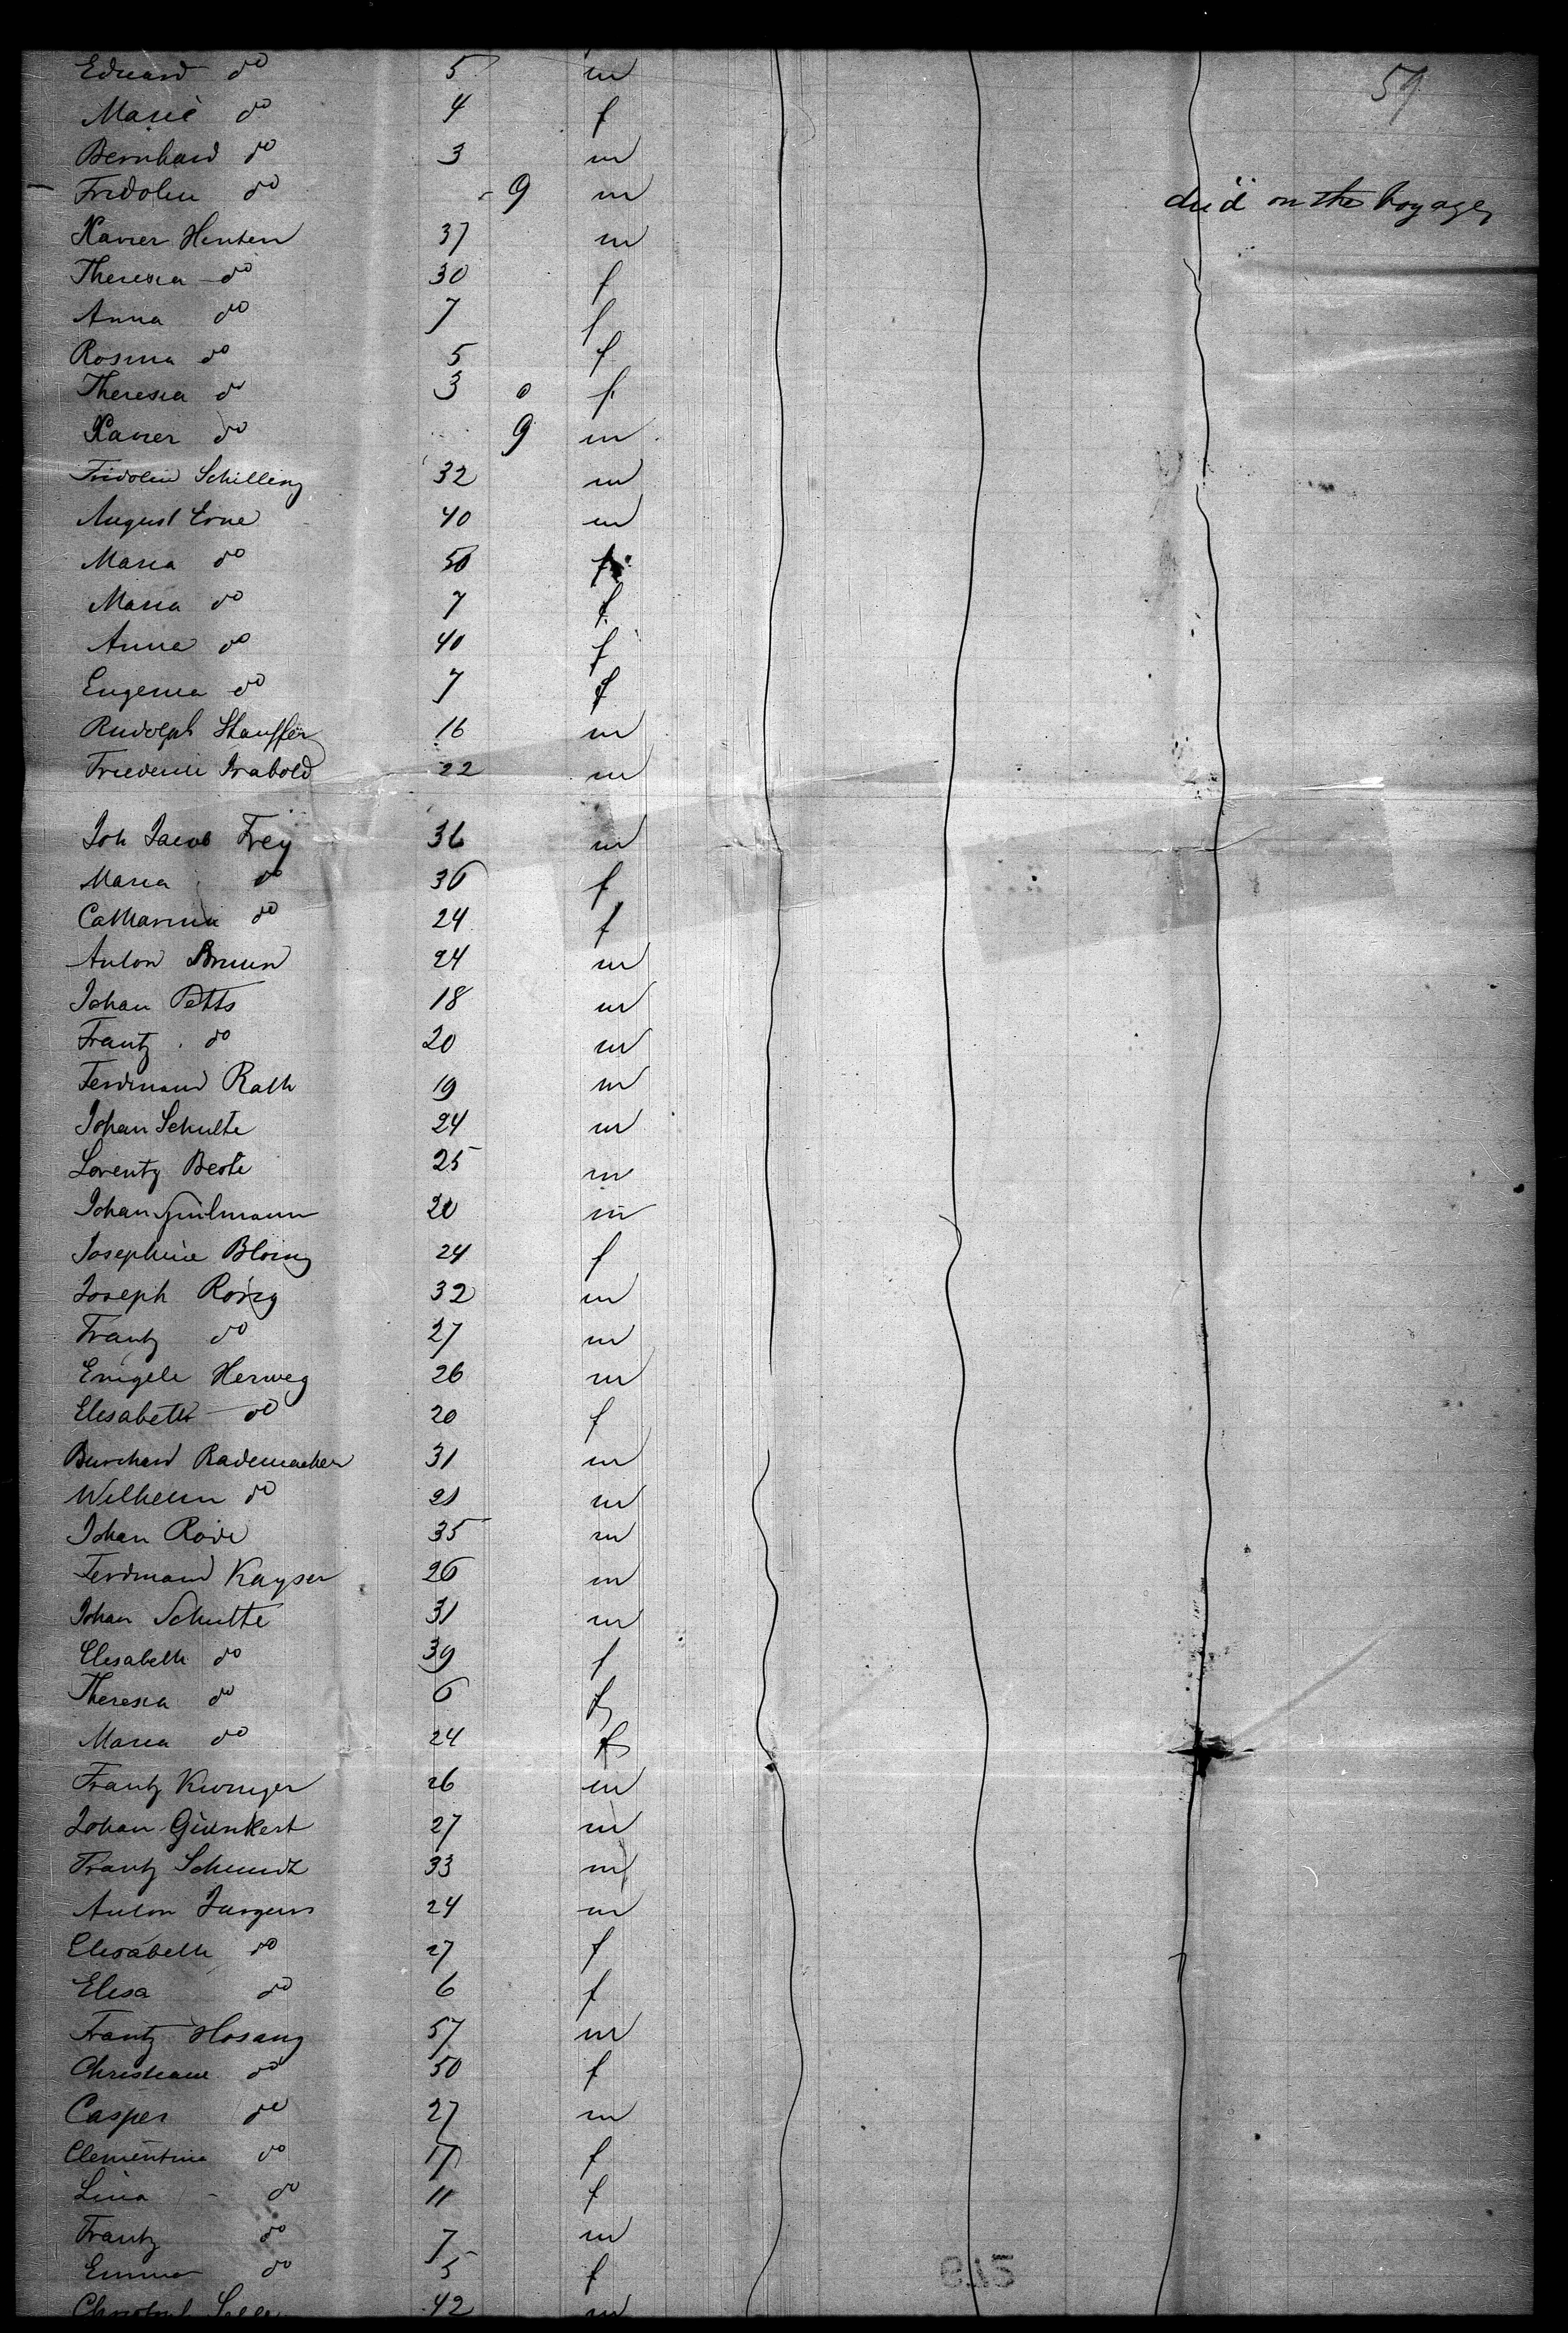 59
Eduard do 5 m
Marie do 4 f
Bernhard do 3 m
Fridolin do - 9 m died on the voyage
Xavier Hinten 37 m
Theresia do 30 f
Anna do 7 f
Rosina do 5 f
Theresia do 3 0 f
Xavier do 9 m
Fridolin Schilling 32 m
August Erne 40 m
Maria do 50 f
Maria do 7 f
Anna do 40 f
Eugenia do 7 f
Rudolph Stauffer 16 m
Friederic 22 m
Joh Jacob Frey 36 m
Maria do 36 f
Catharina do 24 f
Anton Brunn 24 m
Johan Petts 18 m
Frantz do 20 m
Ferdinand Rath 19 m
Johan Schulte 24 m
Lorentz Beste 25 m
Johan 20 m
Josephine Bloing 24 f
Joseph Rorig 32 m
Frantz do 27 m
Herweg 26 m
Elisabeth do 20 f
Burchard Rademacher 31 m
Wilhelm do 21 m
Johan Rode 35 m
Ferdinand Kayser 26 m
Johan Schulte 31 m
Elisabeth do 39 f
Theresia do 6 f
Maria do 24 f
Frantz 26 m
Johan Gunkert 27 m
Frantz Schmidt 33 m
Anton Jurgens 24 m
Elisabeth do 27 f
Elisa do 6 f
Frantz Hosang 57 m
Christiane do 50 f
Casper do 27 m
Clementina do 17 f
Lina do 11 f
Frantz do 7 m
Emma do 5 f
42 m